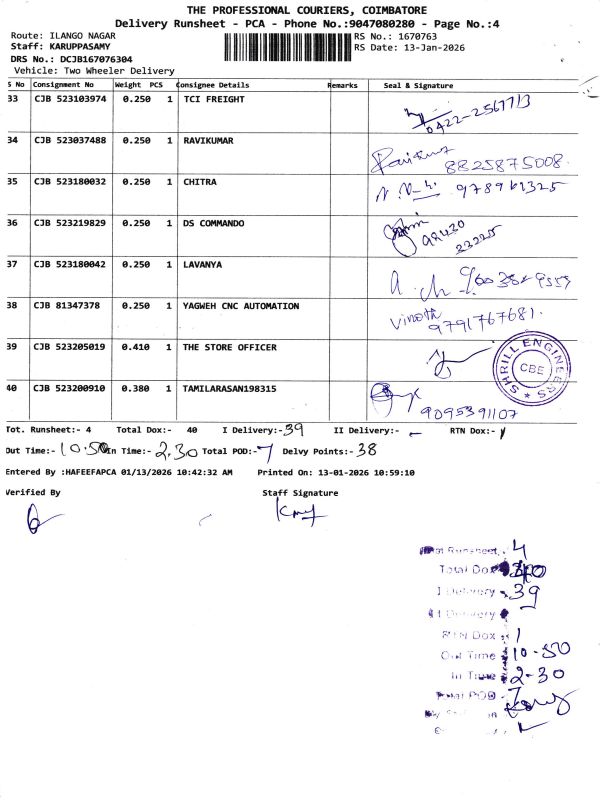 THE PROFESSIONAL COURIERS, COIMBATORE
Delivery Runsheet - PCA - Phone No.:9047080280 - Page No.:4
Route: ILANGO NAGAR RS No.: 1670763
Staff: KARUPPASAMY RS Date: 13-Jan-2026
DRS No.: DCJB167076304
Vehicle: Two Wheeler Delivery
S No Consignment No Weight PCS Consignee Details Remarks Seal & Signature
33 CJB 523103974 0.250 1 TCI FREIGHT 0422-2567713
34 CJB 523037488 0.250 1 RAVIKUMAR Ravikumar 8825875008.
35 CJB 523180032 0.250 1 CHITRA
36 CJB 523219829 0.250 1 DS COMMANDO
37 CJB 523180042 0.250 1 LAVANYA
38 CJB 81347378 0.250 1 YAGWEH CNC AUTOMATION Vinoth 9791767681.
39 CJB 523205019 0.410 1 THE STORE OFFICER SHRILL ENGINEERS CBE
40 CJB 523200910 0.380 1 TAMILARASAN198315 9095391107
Tot. Runsheet:- 4 Total Dox:- 40 I Delivery:- 39 II Delivery:- - RTN Dox:- 1
Out Time:- 10.50 In Time:- 2.30 Total POD:- 7 Delvy Points:- 38
Entered By :HAFEEFAPCA 01/13/2026 10:42:32 AM Printed On: 13-01-2026 10:59:10
Verified By Staff Signature
Total Runsheet 4
Total Dox 40
I Delivery 39
II Delivery
RTN Dox 1
Out Time 10-50
In Time 2-30
Total POD 7